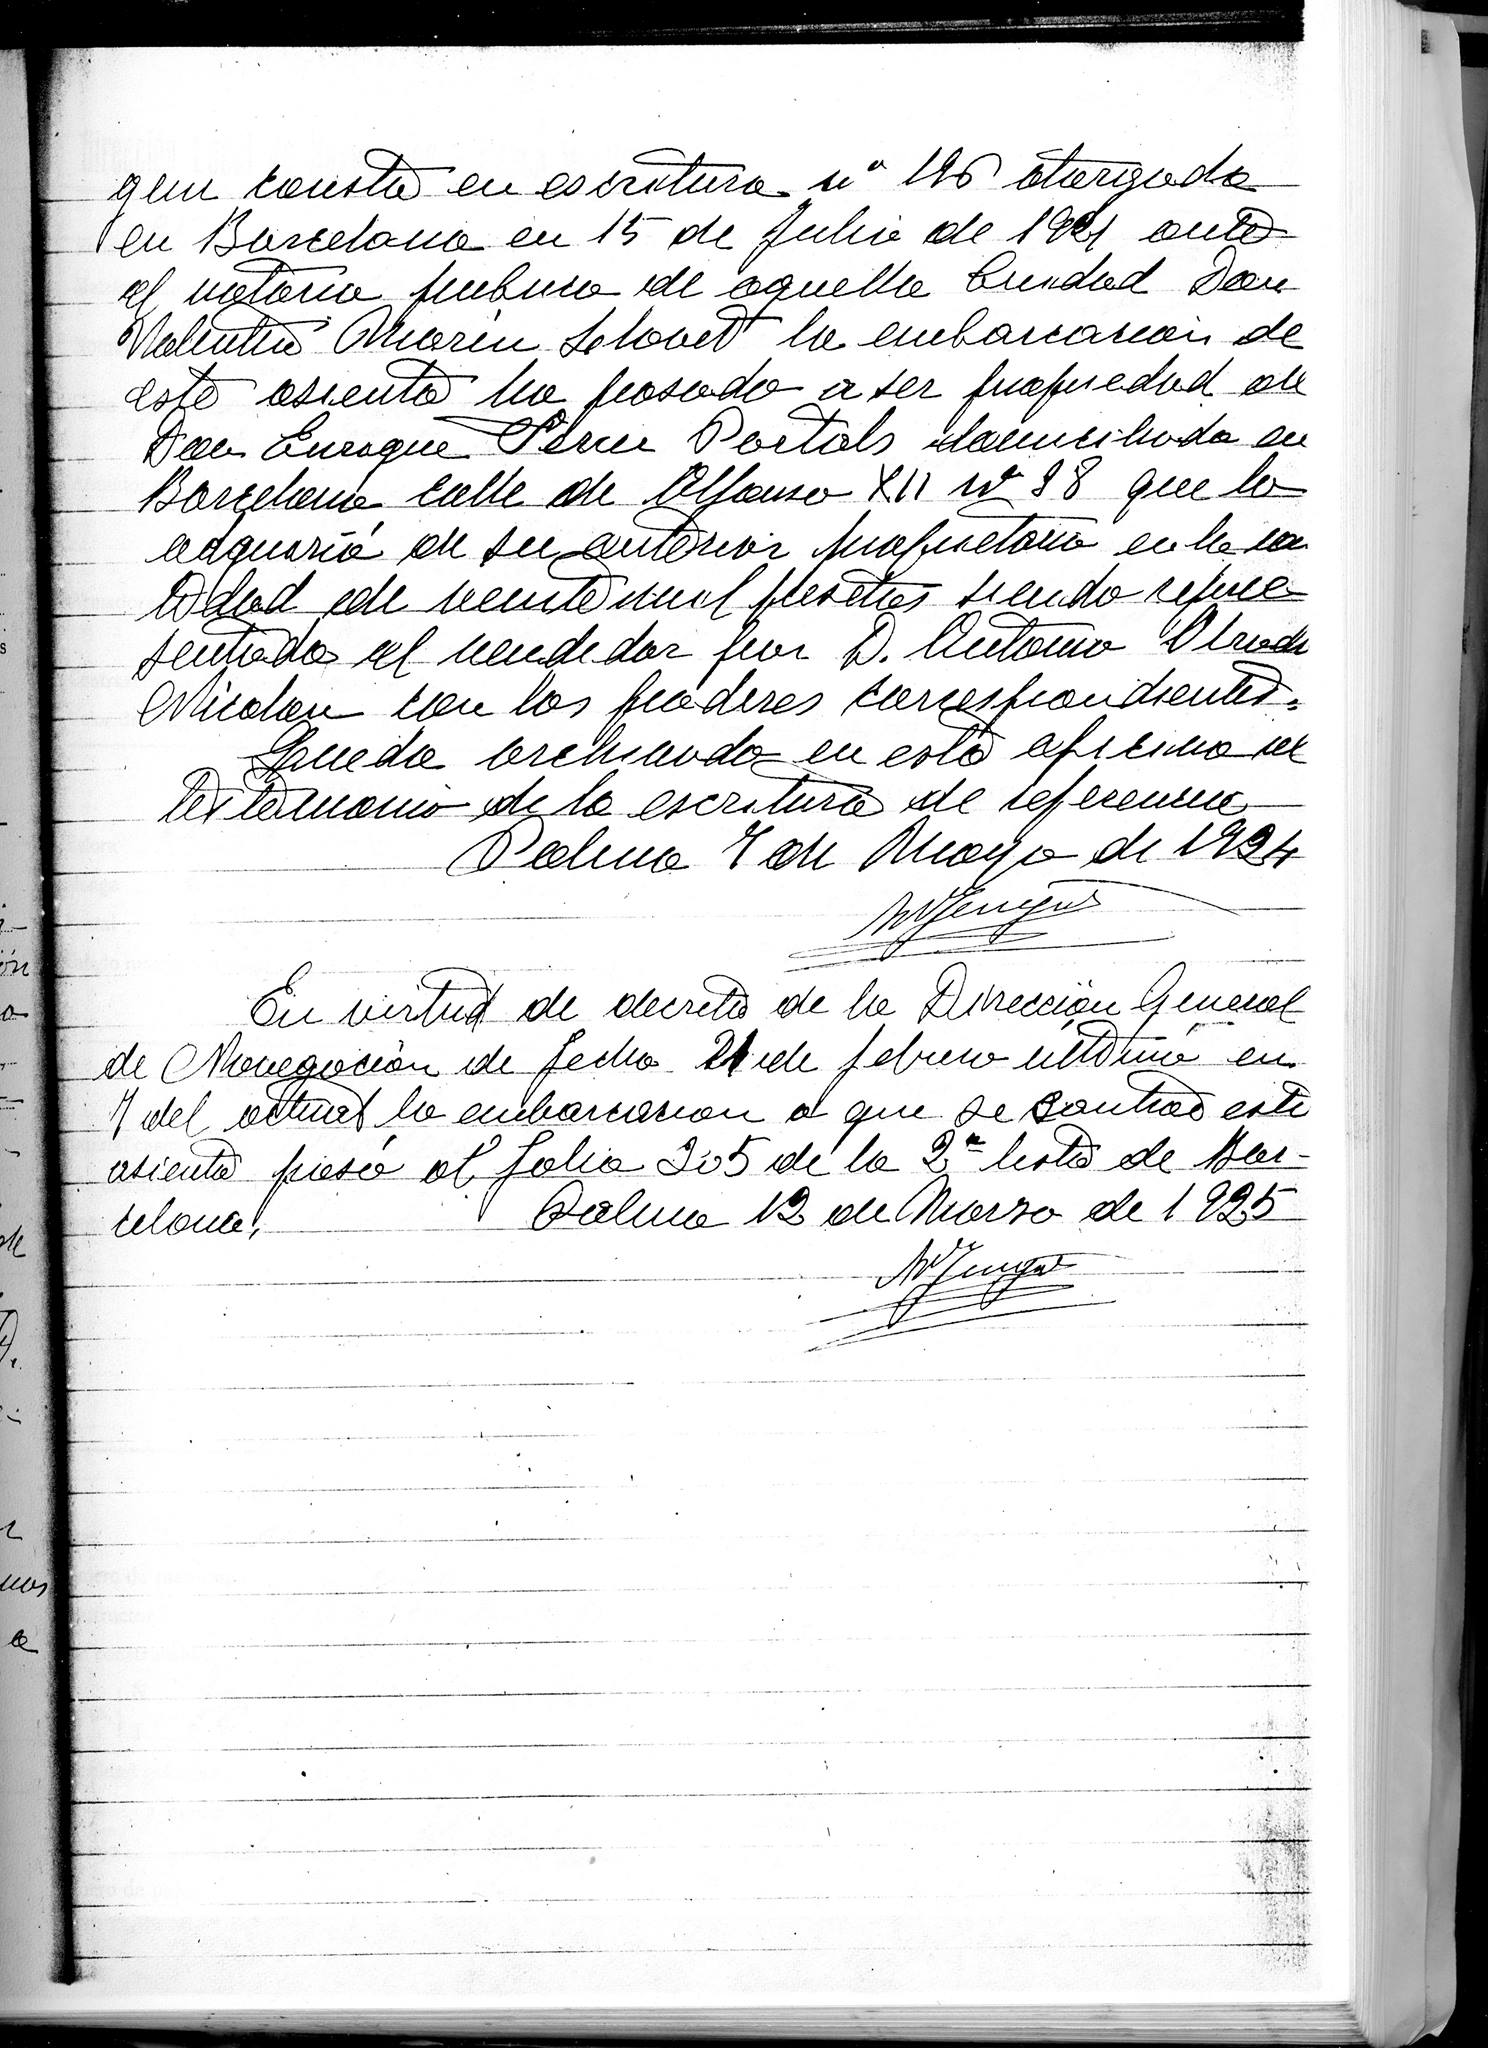 gun consta en escritura nº 196 otorgada
en Barcelona en 15 de Julio de 1921 ante
el notario publico de aquella Ciudad Don
Valentin Marin Llovet la embarcacion de
este asiento ha pasado a ser propiedad de
Don Enrique Perez Portals domiciliado en
Barcelona calle de Alfonso XII nº 88 que la
adquirió de su anterior propietario en la can
tidad de veinte mil pesetas siendo repre
sentado el vendedor por D. Antonio
Nicolau con los poderes correspondientes.
Queda archivado en esta oficina el
testimonio de la escritura de referencia
Palma 7 de Mayo de 1924
En virtud de decreto de la Dirección General
de Navegación de fecha 21 de febrero último en
7 del actual la embarcacion a que se contrae este
asiento pasó al folio 305 de la 2ª lista de Bar-
celona.
Palma 12 de Marzo de 1925
ón
a
de
D.
nos
a